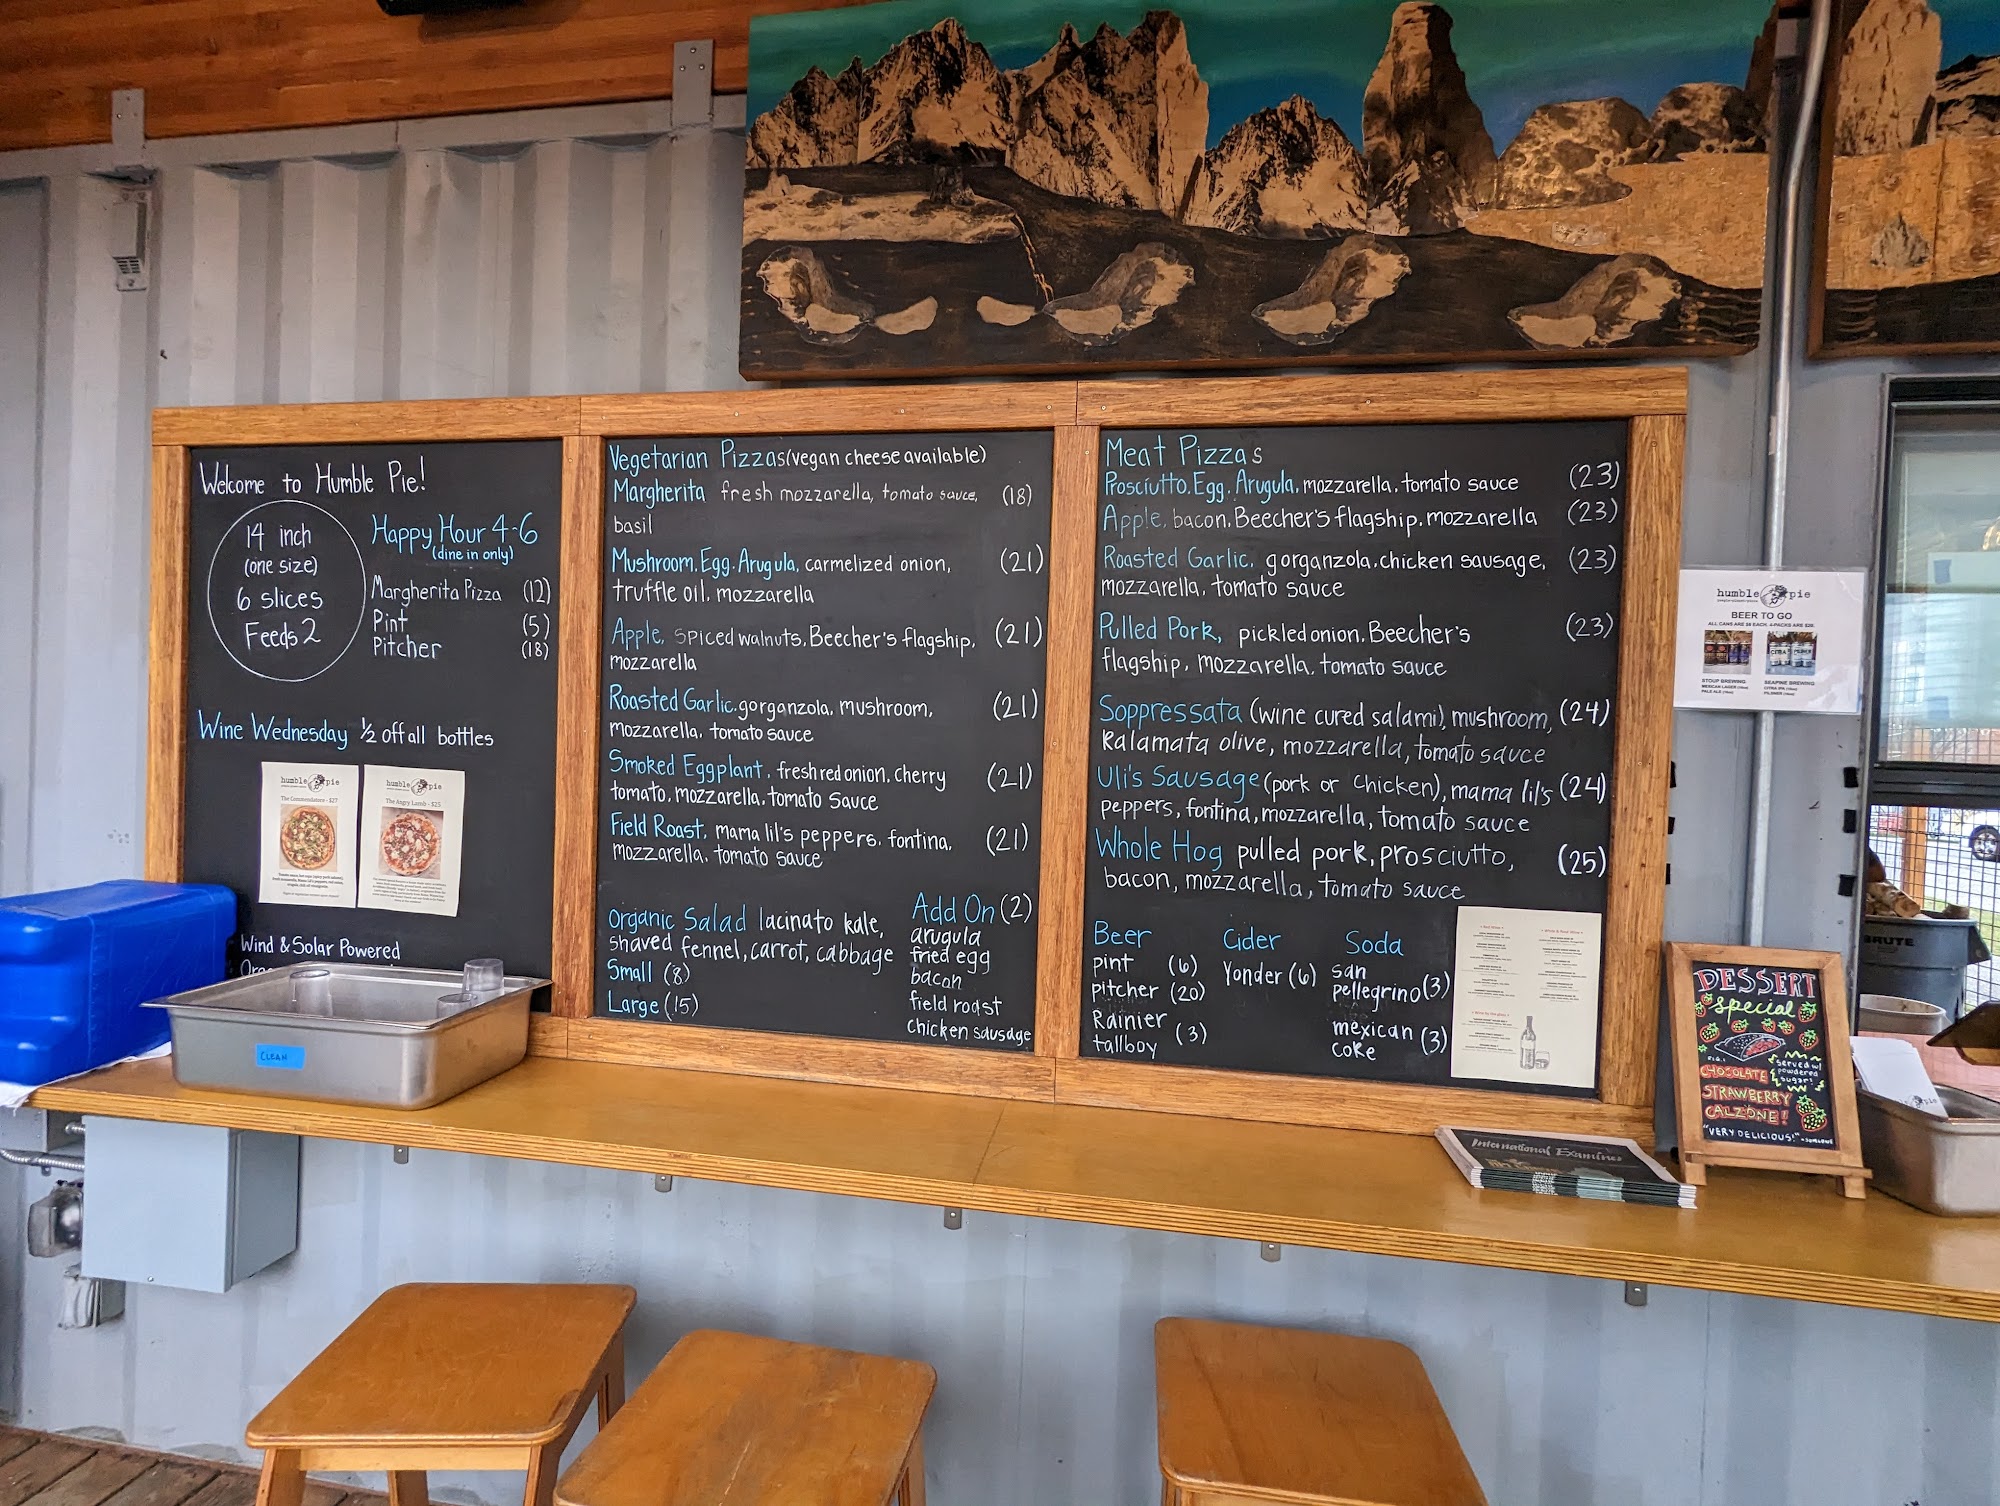 Welcome to Humble Pie!
14 inch
(one size)
6 slices
Feeds 2
Happy Hour 4-6
(dine in only)
Margherita Pizza (12)
Pint (5)
Pitcher (18)
Wine Wednesday ½ off all bottles
humble pie
The Commendatore - $27
humble pie
The Angry Lamb - $25
Wind & Solar Powered
CLEAN
Vegetarian Pizzas (vegan cheese available)
Margherita fresh mozzarella, tomato sauce, (18)
basil
Mushroom. Egg. Arugula, carmelized onion, (21)
truffle oil. mozzarella
Apple, spiced walnuts. Beecher's flagship, (21)
mozzarella
Roasted Garlic. gorganzola. mushroom, (21)
mozzarella, tomato sauce
Smoked Eggplant, fresh red onion. cherry (21)
tomato. mozzarella. tomato sauce
Field Roast, mama lil's peppers. fontina, (21)
mozzarella. tomato sauce
Organic Salad lacinato kale,
shaved fennel, carrot, cabbage
Small (8)
Large (15)
Add On (2)
arugula
fried egg
bacon
field roast
chicken sausage
Meat Pizzas
Prosciutto. Egg. Arugula. mozzarella. tomato sauce (23)
Apple, bacon. Beecher's flagship. mozzarella (23)
Roasted Garlic, gorganzola. chicken sausage, (23)
mozzarella, tomato sauce
Pulled Pork, pickled onion. Beecher's (23)
flagship, mozzarella. tomato sauce
Soppressata (wine cured salami), mushroom, (24)
Kalamata olive, mozzarella, tomato sauce
Uli's Sausage (pork or chicken), mama lil's (24)
peppers, fontina, mozzarella, tomato sauce
Whole Hog pulled pork, prosciutto, (25)
bacon, mozzarella, tomato sauce
Beer
pint (6)
pitcher (20)
Rainier
tallboy (3)
Cider
Yonder (6)
Soda
san
pellegrino (3)
mexican
coke (3)
humble pie
BEER TO GO
ALL CANS ARE $6 EACH, 4-PACKS ARE $20.
STOUP BREWING
MEXICAN LAGER (16oz)
PALE ALE (16oz)
SEAPINE BREWING
CITRA IPA (16oz)
PILSNER (16oz)
BRUTE
DESSERT
special
FIG. 1
CHOCOLATE
STRAWBERRY
CALZONE!
served w/
powdered
sugar!
"VERY DELICIOUS!" - SOMEONE
International Examiner